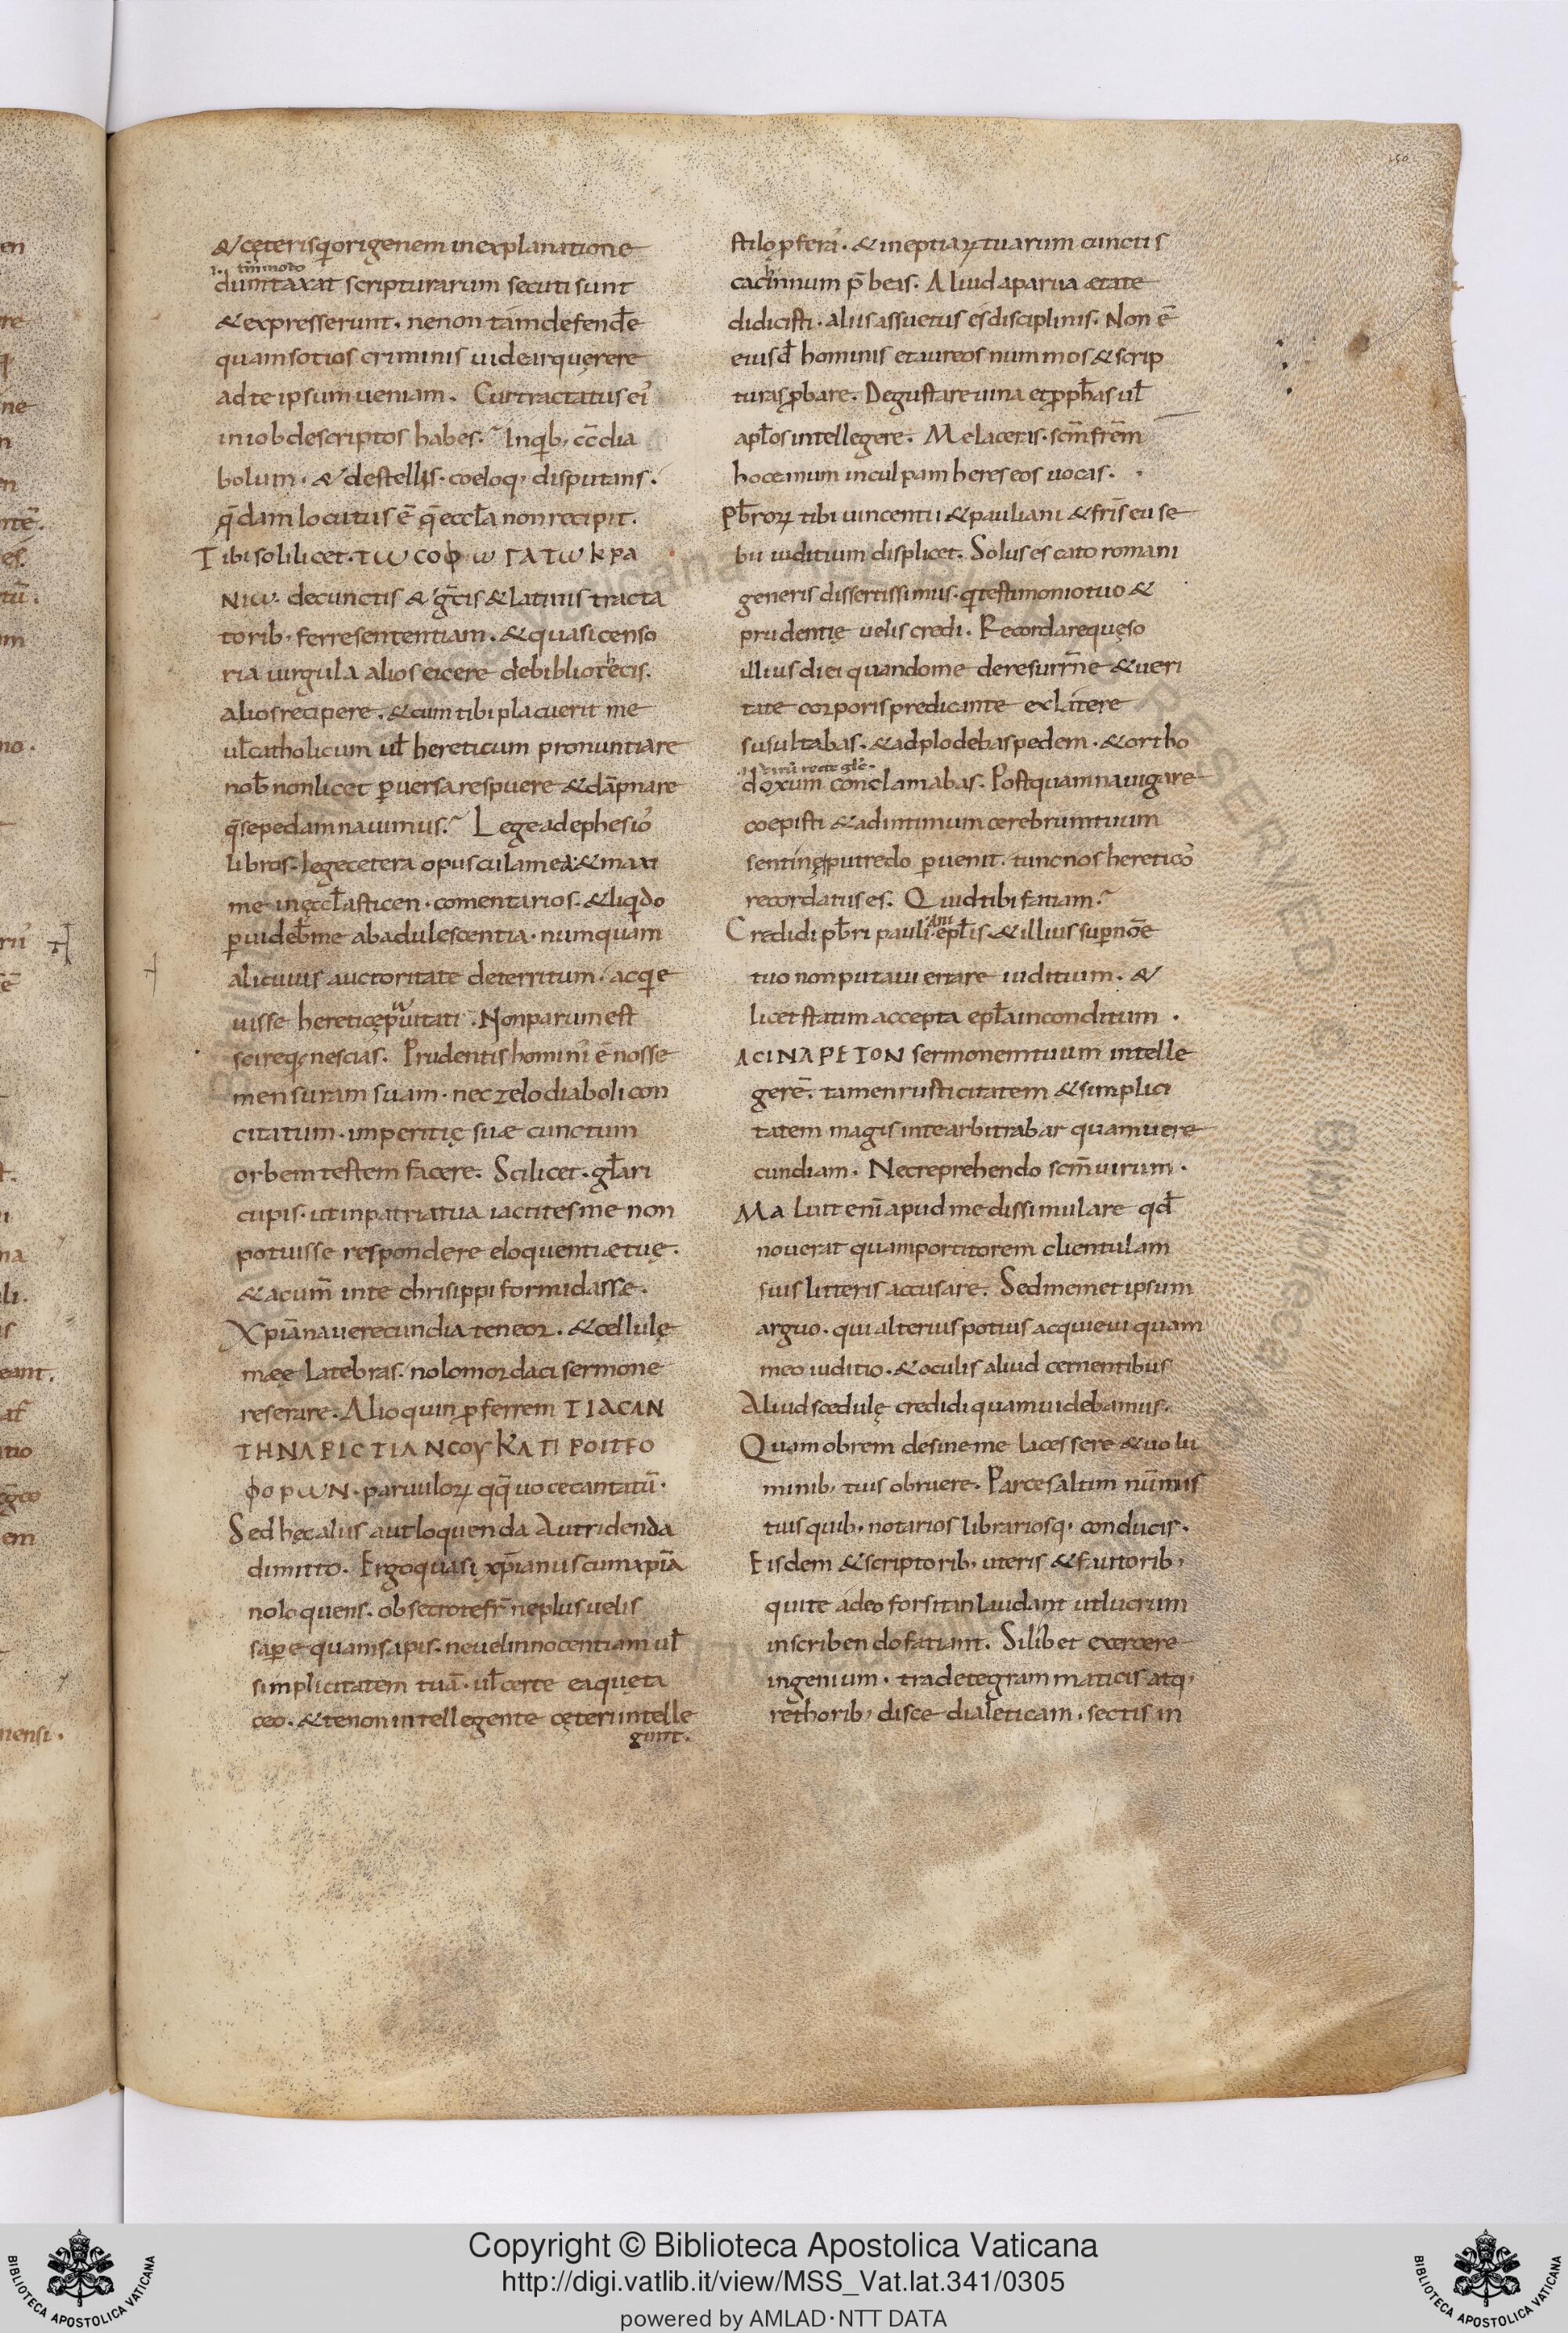 150
& cęteris qui origenem in explanatione
.i. tm̄modo
dumtaxat scripturarum secuti sunt
& expresserunt. ne non tam defendr̄e
quam sotios criminis uidear quęrere
ad te ipsum ueniam. Cur tractatus ei᾿
in iob descriptos habes. In quib; cc̄ dia
bolum. & de stellis. coeloq; disputans.
q̄dam locutus ē q̄ eccl̄a non recipit.
Tibi soli licet. ΤѠ CΟΦѠ ΓΑΤѠ ΚΡΑ
ΝΙѠ. de cunctis & gr̄cis & latinis tracta
torib; ferre sententiam. & quasi censo
ria uirgula alios eicere de bibliothecis.
alios recipere. & cum tibi placuerit me
ul̄ catholicum ul̄ hereticum pronuntiare
nob̄ non licet peruersa respuere & dāpnare
q̄ sepe damnauimus. Lege ad ephesio᾿
libros. lege cetera opuscula mea. & maxi
me in ęccl̄asticen. comentarios. & liquido
peruideb̄ me ab adulescentia. numquam
alicuius auctoritate deterritum. acquie
uisse hereticę prauitati. Non parum est
scire q; nescias. Prudentis homini᾿ ē nosse
mensuram suam. nec zelo diaboli con
citatum. imperitię suæ cunctum
orbem testem facere. Scilicet. gl̄ari
cupis. ut in patria tua iactites me non
potuisse respondere eloquentiæ tuę.
& acum̄ in te chrisippi formidasse.
Xp̄iana uerecundia teneor. & cellulę
meę latebras. nolo mordaci sermone
reserare. Alioquin proferrem ΤΙΑCΑΝ
ΤΗΝΑΡΙCΤΙΑΝCΟΥ ΚΑΤΙ ΡΟΙΤΡΟ
ΦΟΡѠΝ. paruuloꝝ qq̄ uoce cantatū.
Sed hęc aliis aut loquenda aut ridenda
dimitto. Ergo quasi xp̄ianus cum xp̄ia
no loquens. obsecro te fr̄ ne plus uelis
sapere quam sapis. ne uel innocentiam ul̄
simplicitatem tuā. ul̄ certe ea quę ta
ceo. & te non intellegente cęteri intelle
gunt.
stilo proferas. & ineptiaꝝ tuarum cunctis
cachinnum p̄beas. Aliud a parua etate
didicisti. aliis assuetus es disciplinis. Non ē
eiusd̄ hominis et aureos nummos & scrip
turas probare. Degustare uina et proph̄as ul̄
apl̄os intellegere. Me laceris. sc̄m fr̄em
hoceanum in culpam hereseos uocas.
Pb̄roꝝ tibi uincentii & pauliani & fr̄is euse
bii iuditium displicet. Solus es cato romani
generis dissertissimus. qui testimonio tuo &
prudentię uelis credi. Recordare quęso
illius diei quando me de resurr̄ne & ueri
tate corporis predicante ex latere
susultabas. & adplodebas pedem. & ortho
doxum conclamabas. Postquam nauigare
coepisti & ad intimum cerebrum tuum
sentinę putredo peruenit. tunc nos heretico᾿
recordatus es. Quid tibi fatiam.
ani
Credidi pb̄ri pauli epl̄is. & illius super nōe
tuo non putaui errare iuditium. &
licet statim accepta epl̄a inconditum.
ΑCΙΝΑΡΕΤΟΝ sermonem tuum intelle
gerē. tamen rusticitatem & simplici
tatem magis in te arbitrabar quam uere
cundiam. Nec reprehendo sc̄m uirum.
Maluit enī apud me dissimulare qd̄
nouerat quam portitorem clientulam
suis litteris accusare. Sed memet ipsum
arguo. qui alterius potius acquieui quam
meo iuditio. & oculis aliud cernentibus
Aliud scedulę credidi quam uidebamus.
Quam obrem desine me lacessere & uolu
minib; tuis obruere. Parce saltim nūmis
tuis quib; notarios librariosq; conducis.
Eisdem & scriptorib; uteris & fautorib;
qui te adeo forsitan laudant ut lucrum
in scribendo fatiant. Si libet exercere
ingenium. trade te grammaticis atq;
rethorib; disce dialeticam. sectis in
Copyright © Biblioteca Apostolica Vaticana
http://digi.vatlib.it/view/MSS_Vat.lat.341/0305
powered by AMLAD·NTT DATA